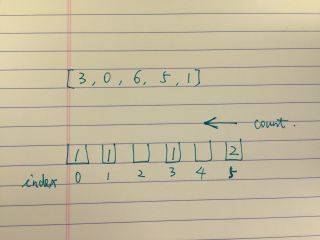 [3, 0, 6, 5, 1]
← count.
1 1 1 2
index 0 1 2 3 4 5